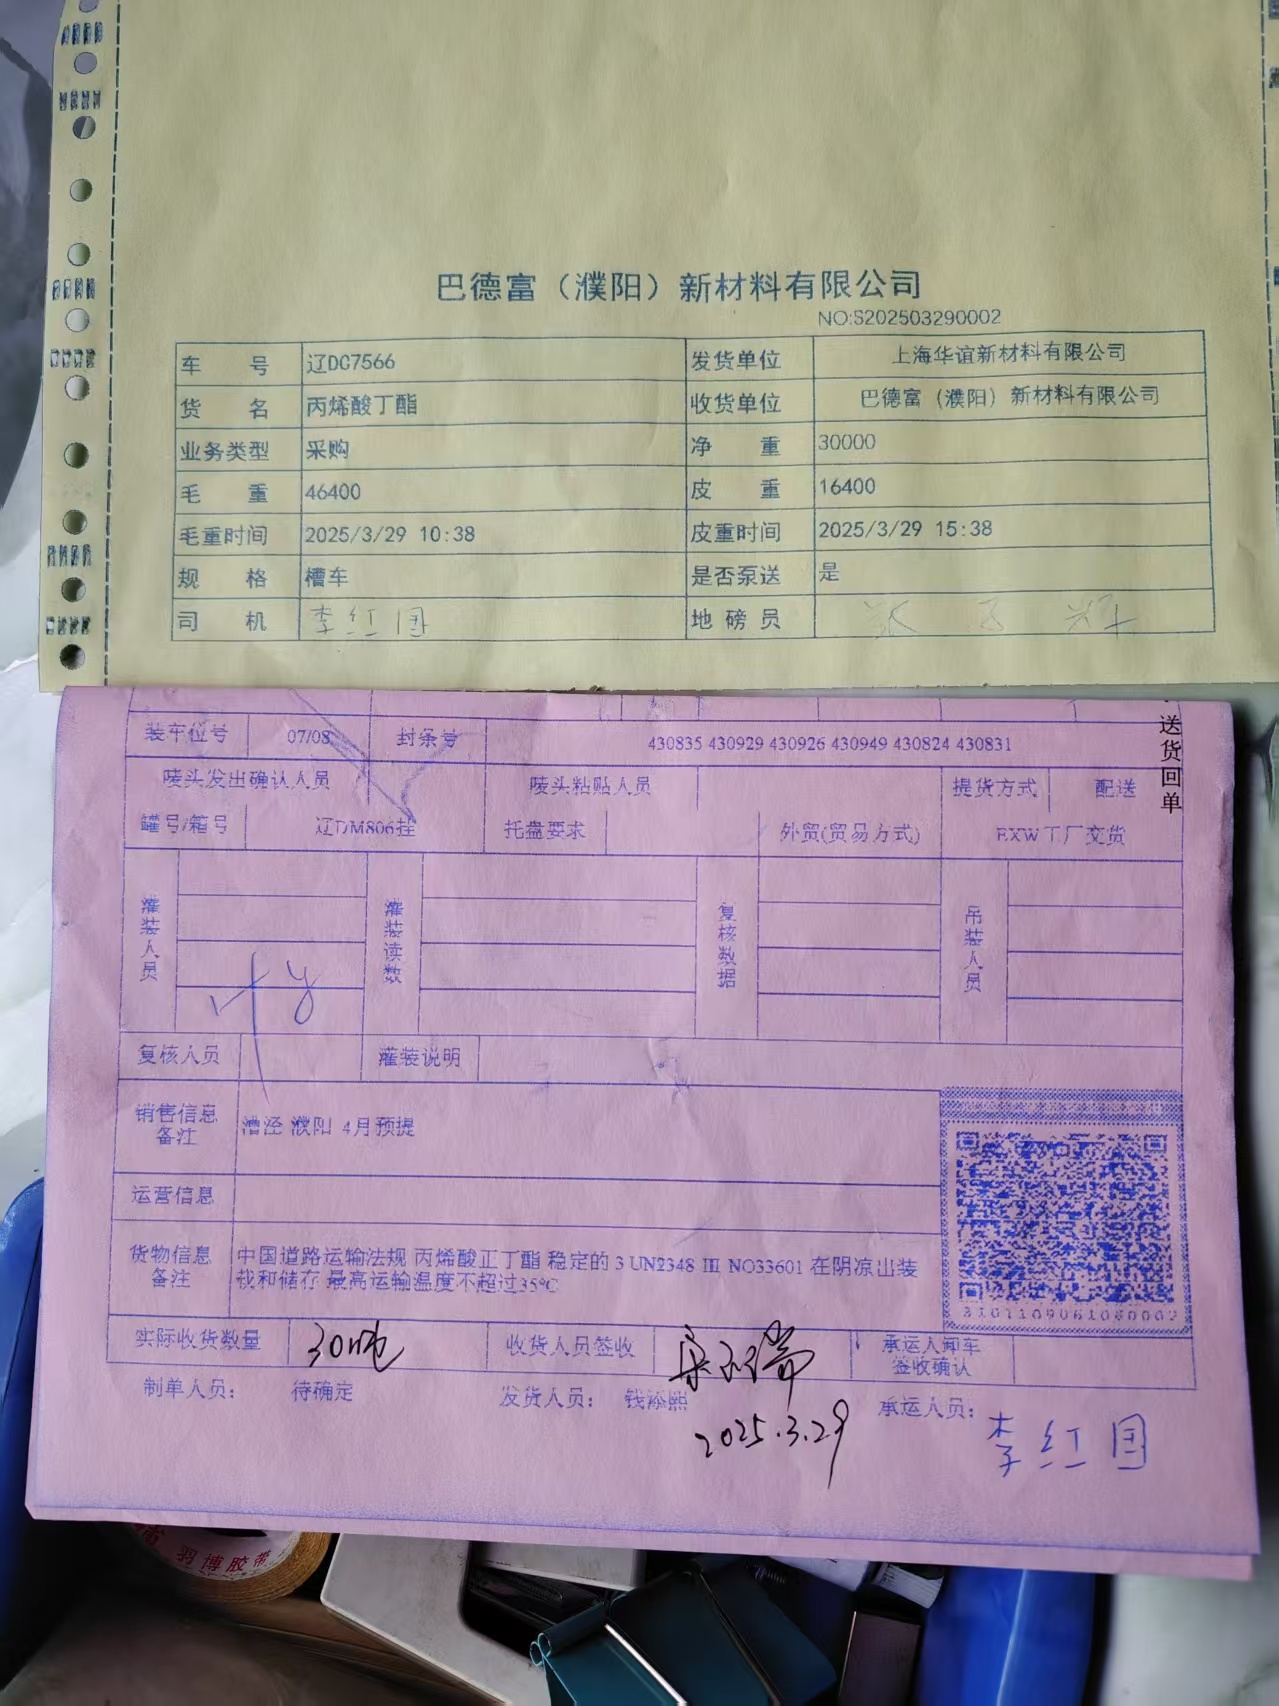 巴德富（濮阳）新材料有限公司
NO:S202503290002
车 号 辽DC7566 发货单位 上海华谊新材料有限公司
货 名 丙烯酸丁酯 收货单位 巴德富（濮阳）新材料有限公司
业务类型 采购 净 重 30000
毛 重 46400 皮 重 16400
毛重时间 2025/3/29 10:38 皮重时间 2025/3/29 15:38
规 格 槽车 是否泵送 是
司 机 李红国 地磅员
送货回单
装车位号 07/08 封条号 430835 430929 430926 430949 430824 430831
唛头发出确认人员 唛头粘贴人员 提货方式 配送
罐号/箱号 辽DM806挂 托盘要求 外贸(贸易方式) EXW工厂交货
灌装人员 灌装读数 复核数据 吊装人员
复核人员 灌装说明
销售信息备注 漕泾 濮阳 4月预提
运营信息
货物信息备注 中国道路运输法规 丙烯酸正丁酯 稳定的 3 UN2348 III NO33601 在阴凉出装
载和储存 最高运输温度不超过35℃
3101109061080002
实际收货数量 30吨 收货人员签收 承运人卸车签收确认
制单人员： 待确定 发货人员： 钱添熙 承运人员： 李红国
2025.3.29
羽博胶带